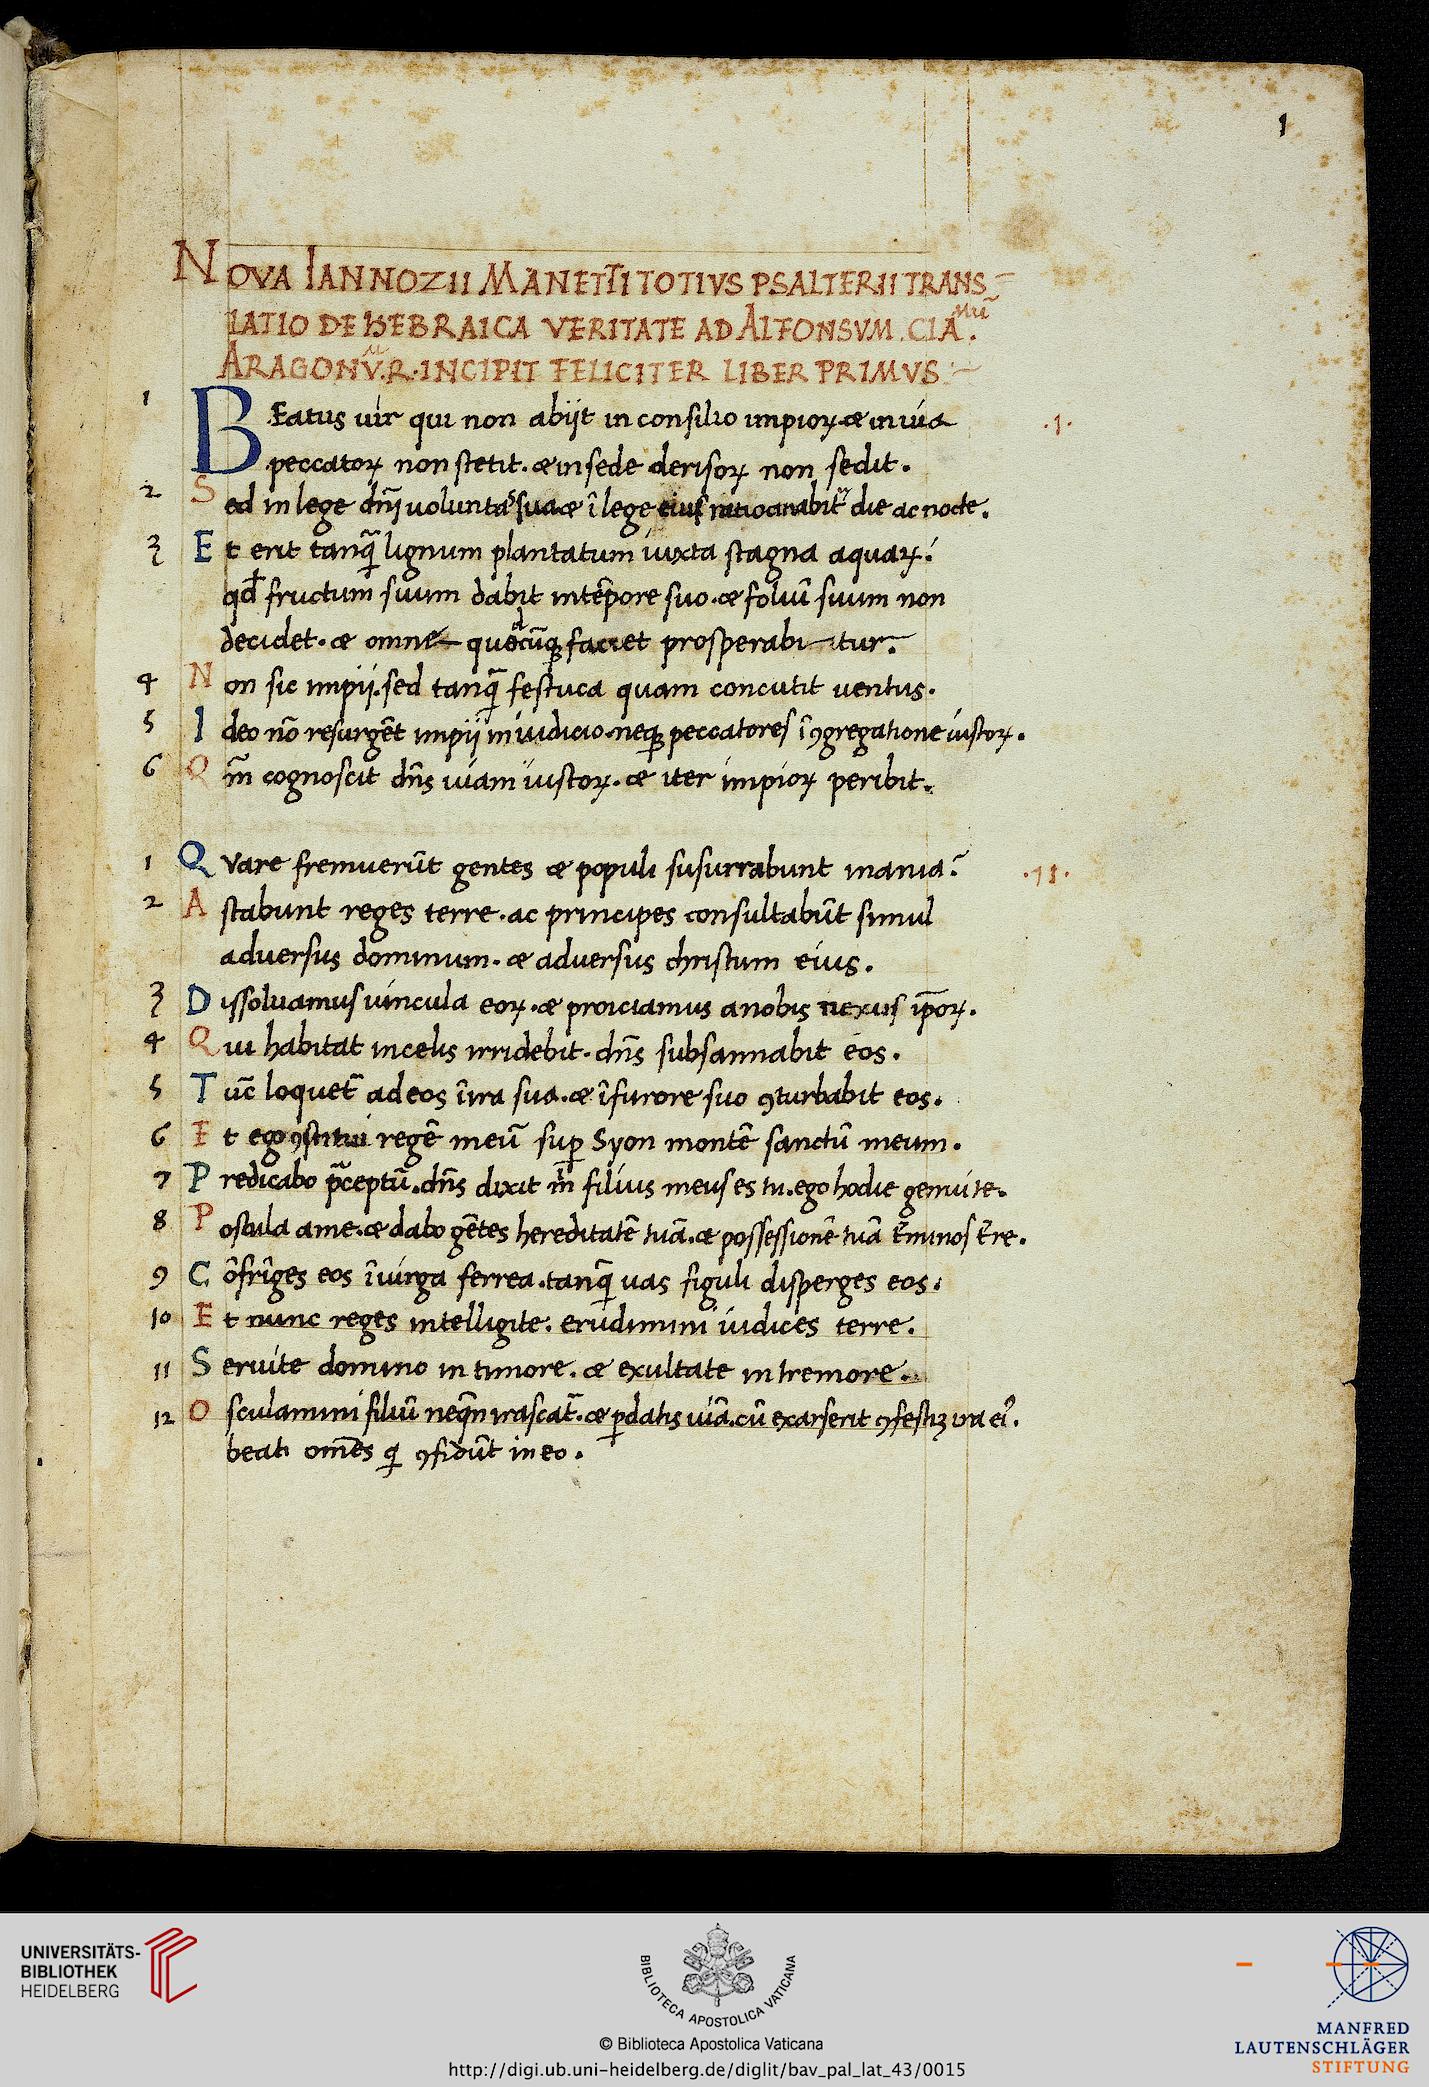 1
NOVA IANNOZII MANETTI TOTIVS PSALTERII TRANS-
LATIO DE HEBRAICA VERITATE AD ALFONSVM. CLAᵐᵘ̄.
ARAGONVᵐ.R.INCIPIT FELICITER LIBER PRIMVS
1 BEatus uir qui non abijt in consilio impioꝝ. æ in uia .1.
peccatoꝝ non stetit. æ in sede derisoꝝ non sedit.
2 Sed in lege dn̄i uoluntas sua. æ ī lege eius ratiocinabitʳ die ac nocte.
3 Et erit tanq̄ lignum plantatum iuxta stagna aquaꝝ:
qđ fructum suum dabit in tēpore suo. æ foliū suum non
decidet. æ omne quodcūqꝫ faciet prosperabitur.
4 Non sic impij. sed tanq̄ festuca quam concutit uentus.
5 Ideo nō resurgēt impij in iudicio. neqꝫ peccatores ī ꝯgregatione iustoꝝ.
6 Qm̄ cognoscit dn̄s uiam iustoꝝ. æ iter impioꝝ peribit.
1 QVare fremuerūt gentes æ populi susurrabunt inania? .11.
2 Astabunt reges terre. ac principes consultabūt simul
aduersus dominum. æ aduersus christum eius.
3 Dissoluamus uincula eoꝝ. æ proiciamus a nobis nexus ip̄oꝝ.
4 Qui habitat in celis irridebit. dn̄s subsannabit eos.
5 Tūc loquet̄ ad eos ī ira sua. æ ī furore suo ꝯturbabit eos.
6 Et ego ꝯstitui regē meū suꝑ Syon montē sanctū meum.
7 Predicabo p̄ceptū. dn̄s dixit m̄ filius meus es tu. ego hodie genui te.
8 Postula a me. æ dabo gētes hereditatē tuā. æ possessionē tuā t̄minos t̄re.
9 Cōfrīges eos ī uirga ferrea. tanq̄ uas figuli disperges eos.
10 Et nunc reges intelligite. erudimini iudices terre.
11 Seruite domino in timore. æ exultate in tremore.
12 Osculamini filiū neq̄n irascat̄. æ ꝑdatis uiā. cū exarserit ꝯfestiꝫ ira eiꝰ.
beati om̄es qi ꝯfidūt in eo.
UNIVERSITÄTS-
BIBLIOTHEK
HEIDELBERG
BIBLIOTECA APOSTOLICA VATICANA
© Biblioteca Apostolica Vaticana
http://digi.ub.uni-heidelberg.de/diglit/bav_pal_lat_43/0015
MANFRED
LAUTENSCHLÄGER
STIFTUNG